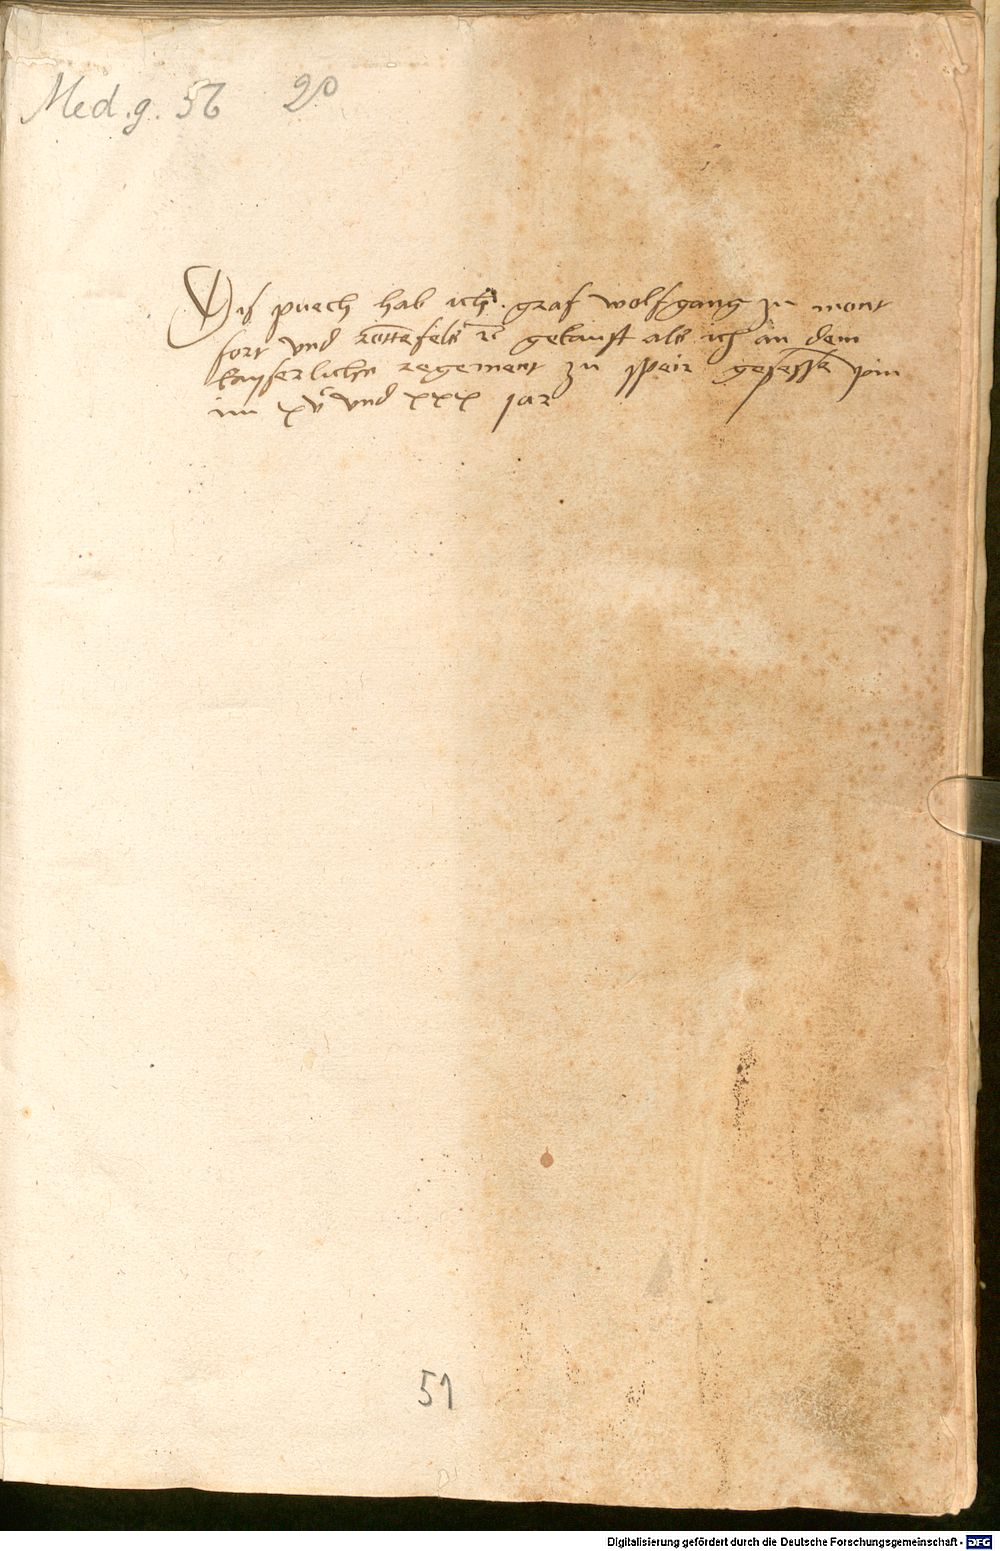 Med. g. 56 2°
Dis puech hab ich graf wolfgang zu mont
fort und rottēfels rc̄ gekauft als ich an dem
kayserlichn regement zu speir gesessē pin
im xvͨ und xxx jar
51
Digitalisierung gefördert durch die Deutsche Forschungsgemeinschaft - DFG